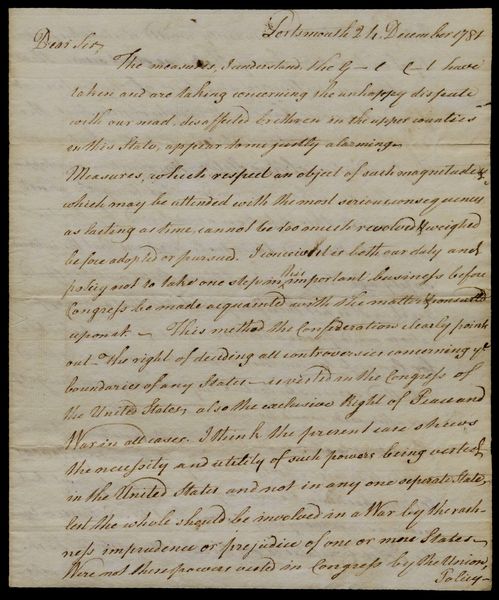 Portsmouth 24 December 1781
Dear Sir,
The measures, I understand, the G—l C—l have
taken and are taking concerning the unhappy dispute
with our mad, disaffected brethren in the upper counties
in this State, appear to me justly alarming
Measures, which respect an object of such magnitude &
which may be attended with the most serious consequences
as lasting as time, cannot be too much revolved & weighed
before adopted or pursued. I conceive it is both our duty and
policy not to take one step in this important bussiness before
Congress be made acquainted with the matter & consulted
upon it — This method the Confederation clearly points
out — the right of deciding all controversies concerning ye
boundaries of any States — is vested in the Congress of
the United States, also the exclusive Right of Peace and
War in all cases. I think the present case shews
the necessity and utility of such powers being vested
in the United States and not in any one separate State,
lest the whole should be involved in a War by the rash-
ness imprudence or prejudice of one or more States —
Were not these powers vested in Congress by the Union,
Policy —